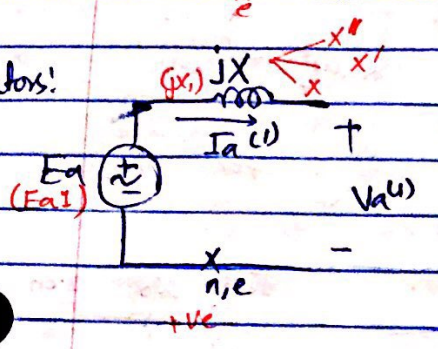 e
tors:
jX
X"
X'
X
(jX₁)
Ia⁽¹⁾
+
Ea
(Ea1)
+
-
Va⁽¹⁾
-
n,e
+ve